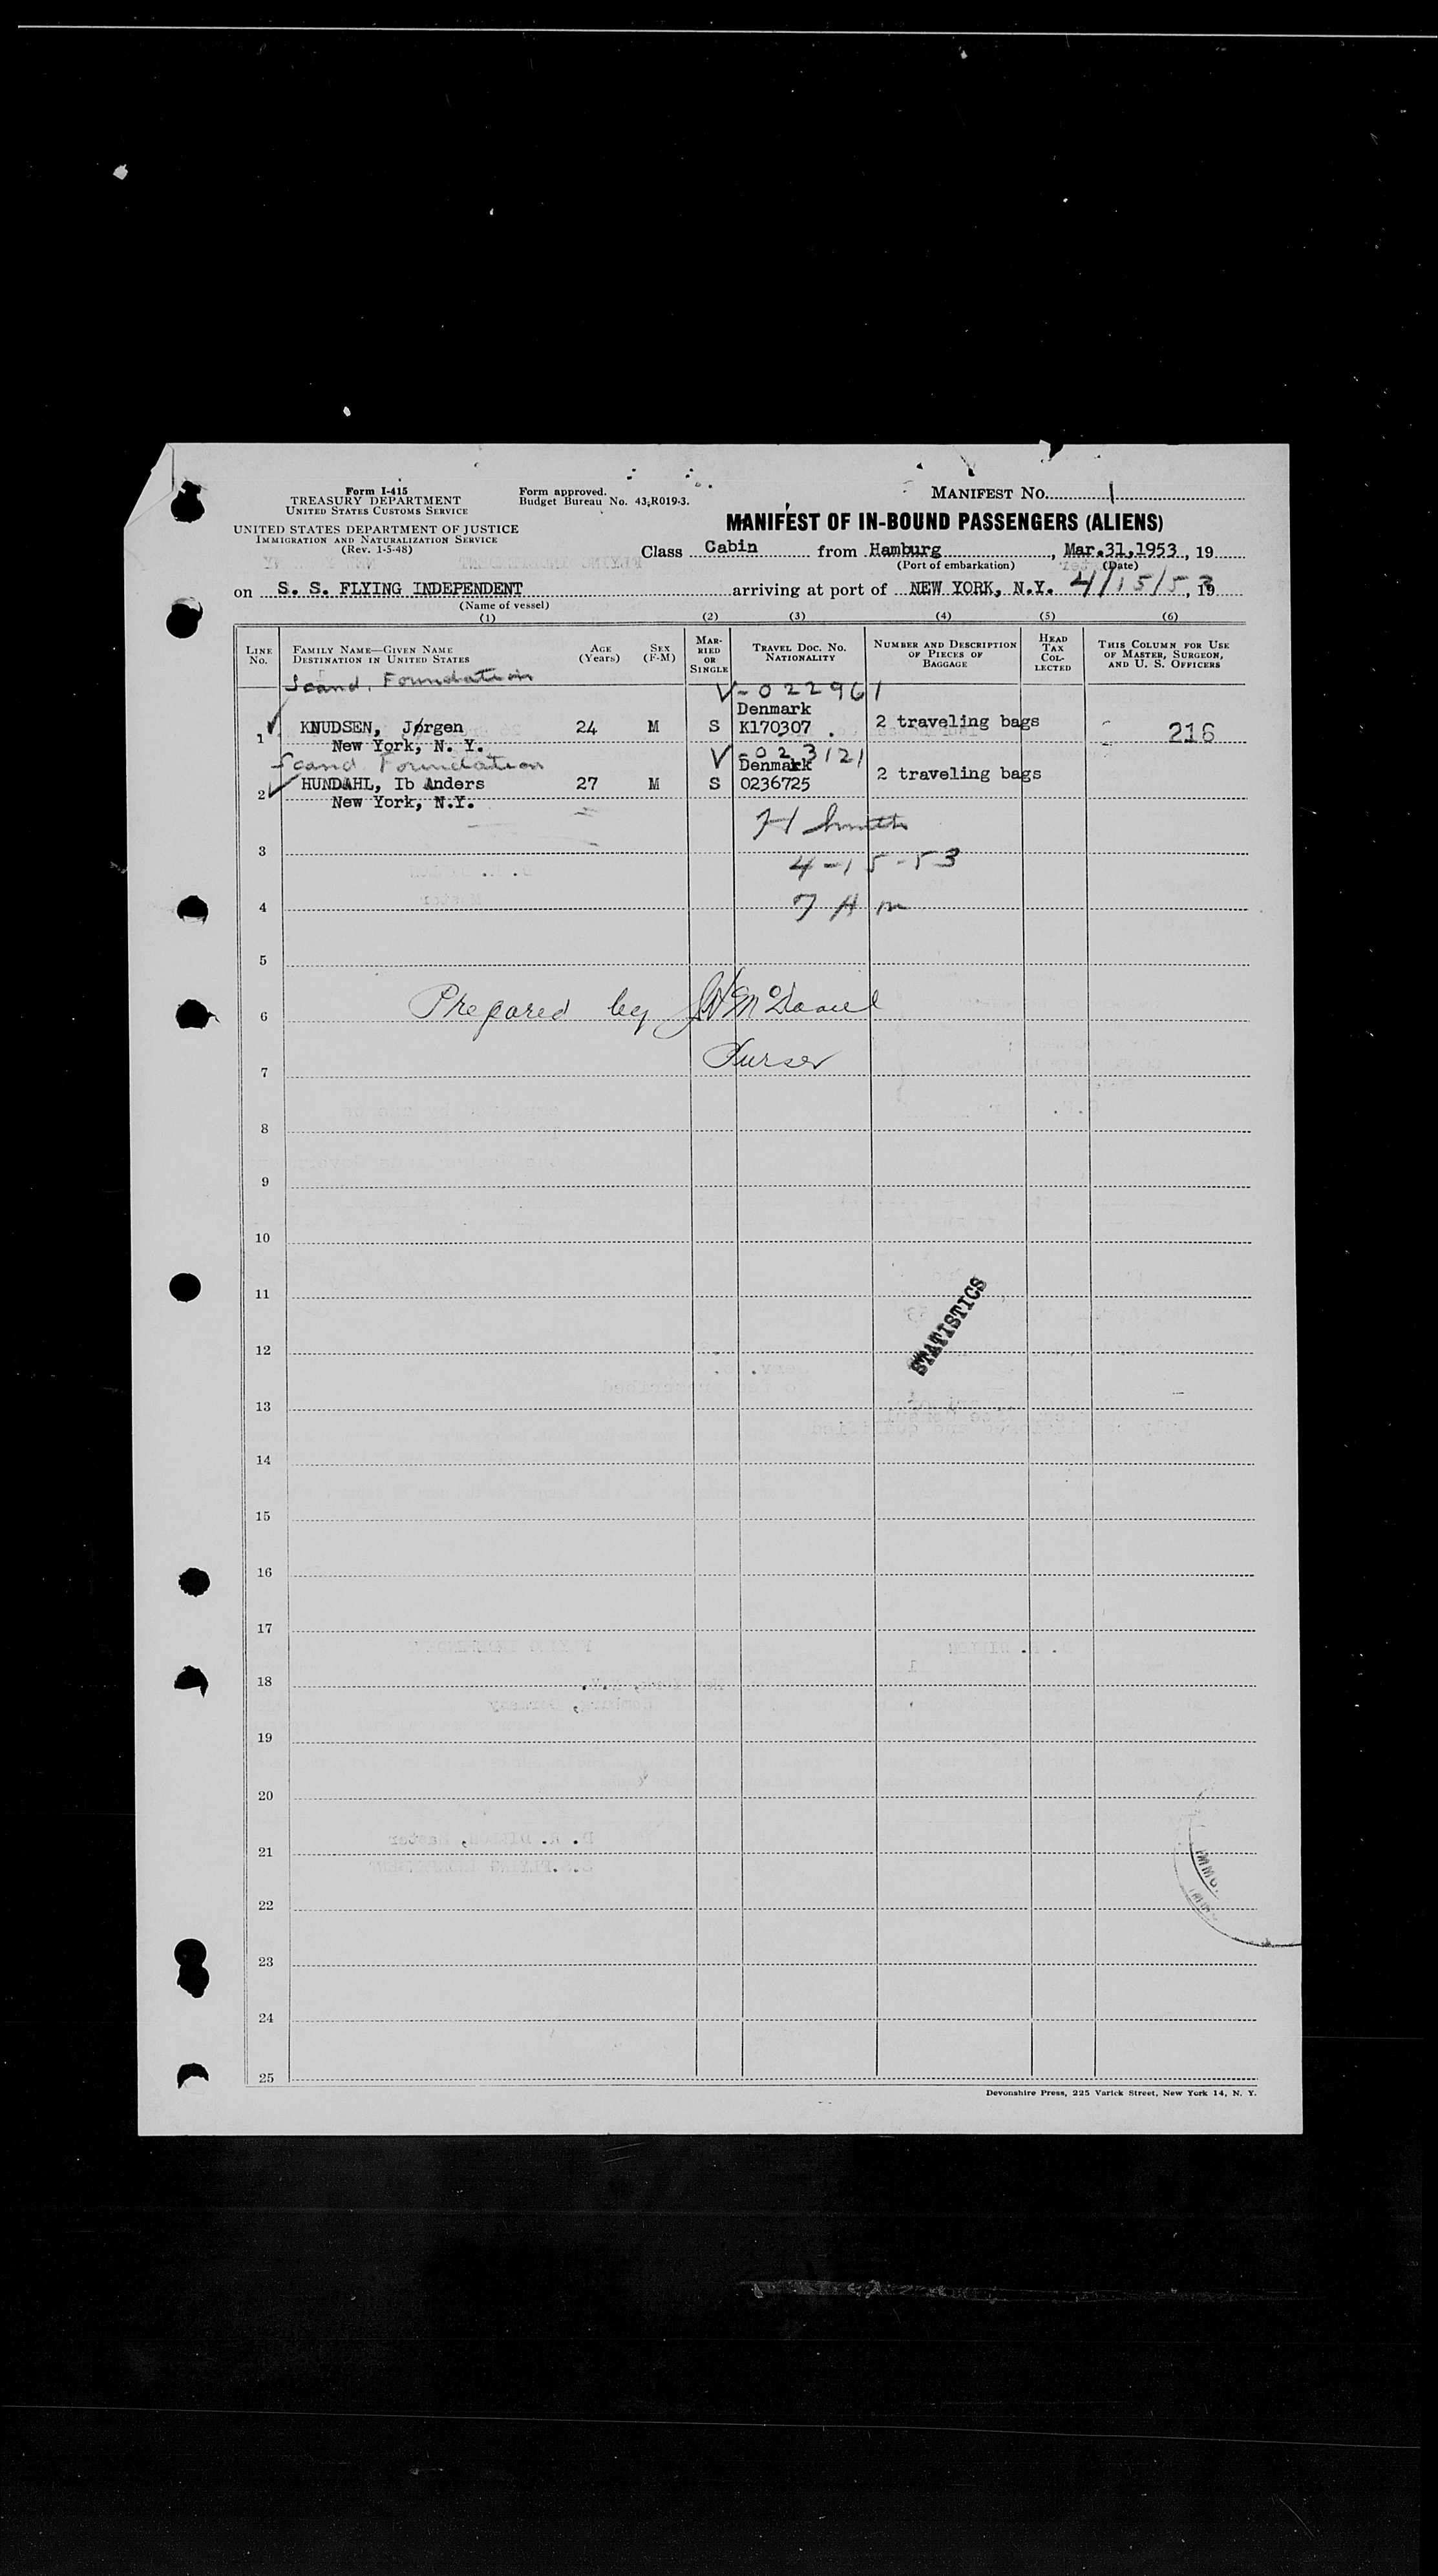 Form I-415
TREASURY DEPARTMENT
UNITED STATES CUSTOMS SERVICE
UNITED STATES DEPARTMENT OF JUSTICE
IMMIGRATION AND NATURALIZATION SERVICE
(Rev. 1-5-48)
Form approved.
Budget Bureau No. 43-R019-3.
MANIFEST NO. 1
MANIFEST OF IN-BOUND PASSENGERS (ALIENS)
Class Cabin from Hamburg, Mar.31,1953, 19
(Port of embarkation) (Date)
on S. S. FLYING INDEPENDENT arriving at port of NEW YORK, N.Y. 4/15/53, 19
(Name of vessel)
(1) (2) (3) (4) (5) (6)
LINE No. FAMILY NAME—GIVEN NAME DESTINATION IN UNITED STATES AGE (Years) SEX (F-M) MARRIED OR SINGLE TRAVEL DOC. NO. NATIONALITY NUMBER AND DESCRIPTION OF PIECES OF BAGGAGE HEAD TAX COLLECTED THIS COLUMN FOR USE OF MASTER, SURGEON, AND U. S. OFFICERS
Scand. Foundation V-022961
Denmark
1 KNUDSEN, Jørgen 24 M S K170307 2 traveling bags 216
New York, N. Y.
Scand Foundation V-023121
Denmark
2 HUNDAHL, Ib Anders 27 M S 0236725 2 traveling bags
New York, N.Y.
H Smith
3
4-15-53
4 7 Am
5
6 Prepared by McDaniel
Purser
7
8
9
10
11
STATISTICS
12
13
14
15
16
17
18
19
20
21
IMMG.
22
23
24
25
Devonshire Press, 225 Varick Street, New York 14, N. Y.